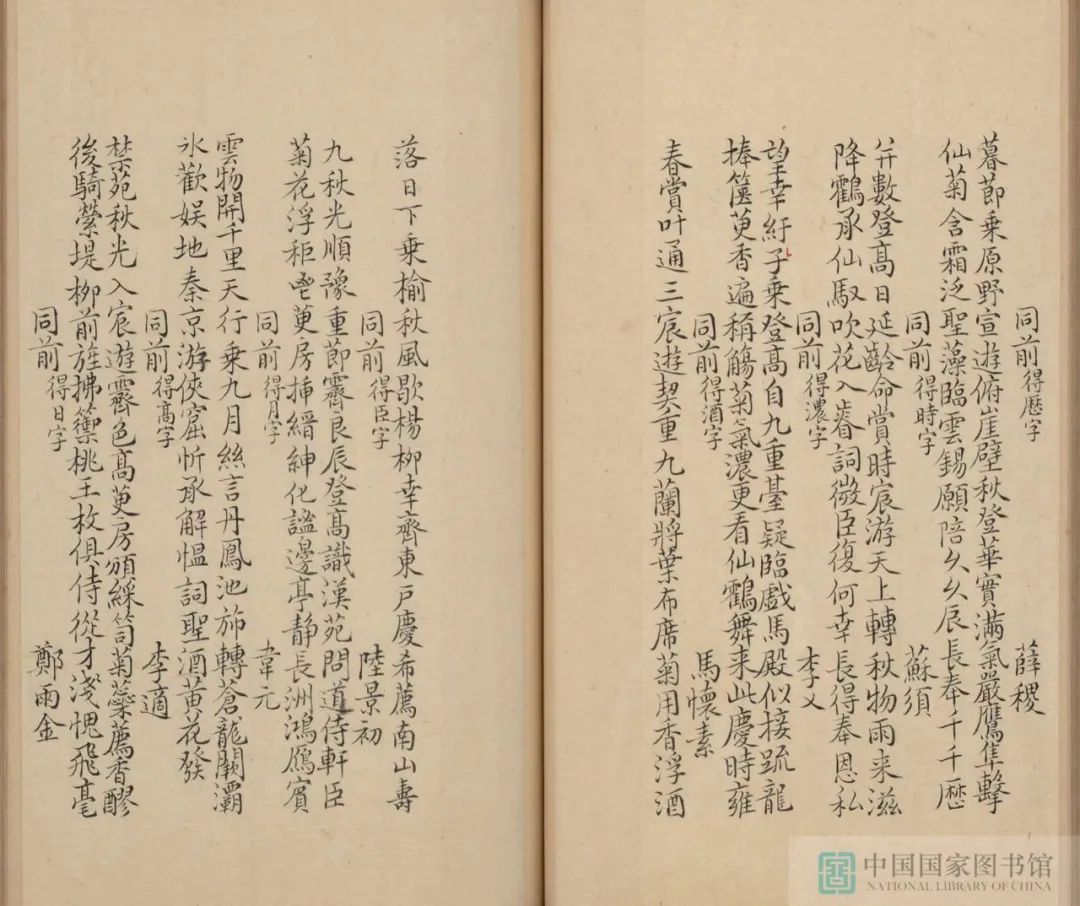 同前得歷字 薛稷
暮節乗原野宣遊俯崖壁秋登華實滿氣嚴鷹隼擊
仙菊含霜泛聖藻臨雲錫願陪久久辰長奉千千歷
同前得時字 蘇須
并數登髙日延齡命賞時宸游天上轉秋物雨来滋
降鶴承仙馭吹花入睿詞微臣復何幸長得奉恩私
同前得濃字 李乂
望幸紆子乗登髙自九重臺疑臨戲馬殿似接䟽龍
捧篋萸香遍稱觴菊氣濃更看仙鶴舞来此慶時雍
同前得酒字 馬懷素
春賞叶通三宸遊契重九蘭將葉布席菊用香浮酒
落日下乗榆秋風歇楊柳幸齊東戸慶希薦南山壽
同前得臣字 陸景初
九秋光順豫重節霽良辰登髙識漢苑問道侍軒臣
菊花浮秬鬯萸房揷縉紳化謐邊亭静長洲鴻鴈賓
同前得月字 韋元
雲物開千里天行乗九月絲言丹鳳池斾轉蒼龍闕灞
氷歡娱地秦京游俠窟忻承解愠詞聖酒黄花發
同前得髙字 李適
禁苑秋光入宸遊霽色髙萸房頒綵笥菊蘂薦香醪
後騎縈堤柳前旌拂蘌桃王枚俱侍從才淺愧飛毫
同前得日字 鄭雨金
中国国家图书馆
NATIONAL LIBRARY OF CHINA